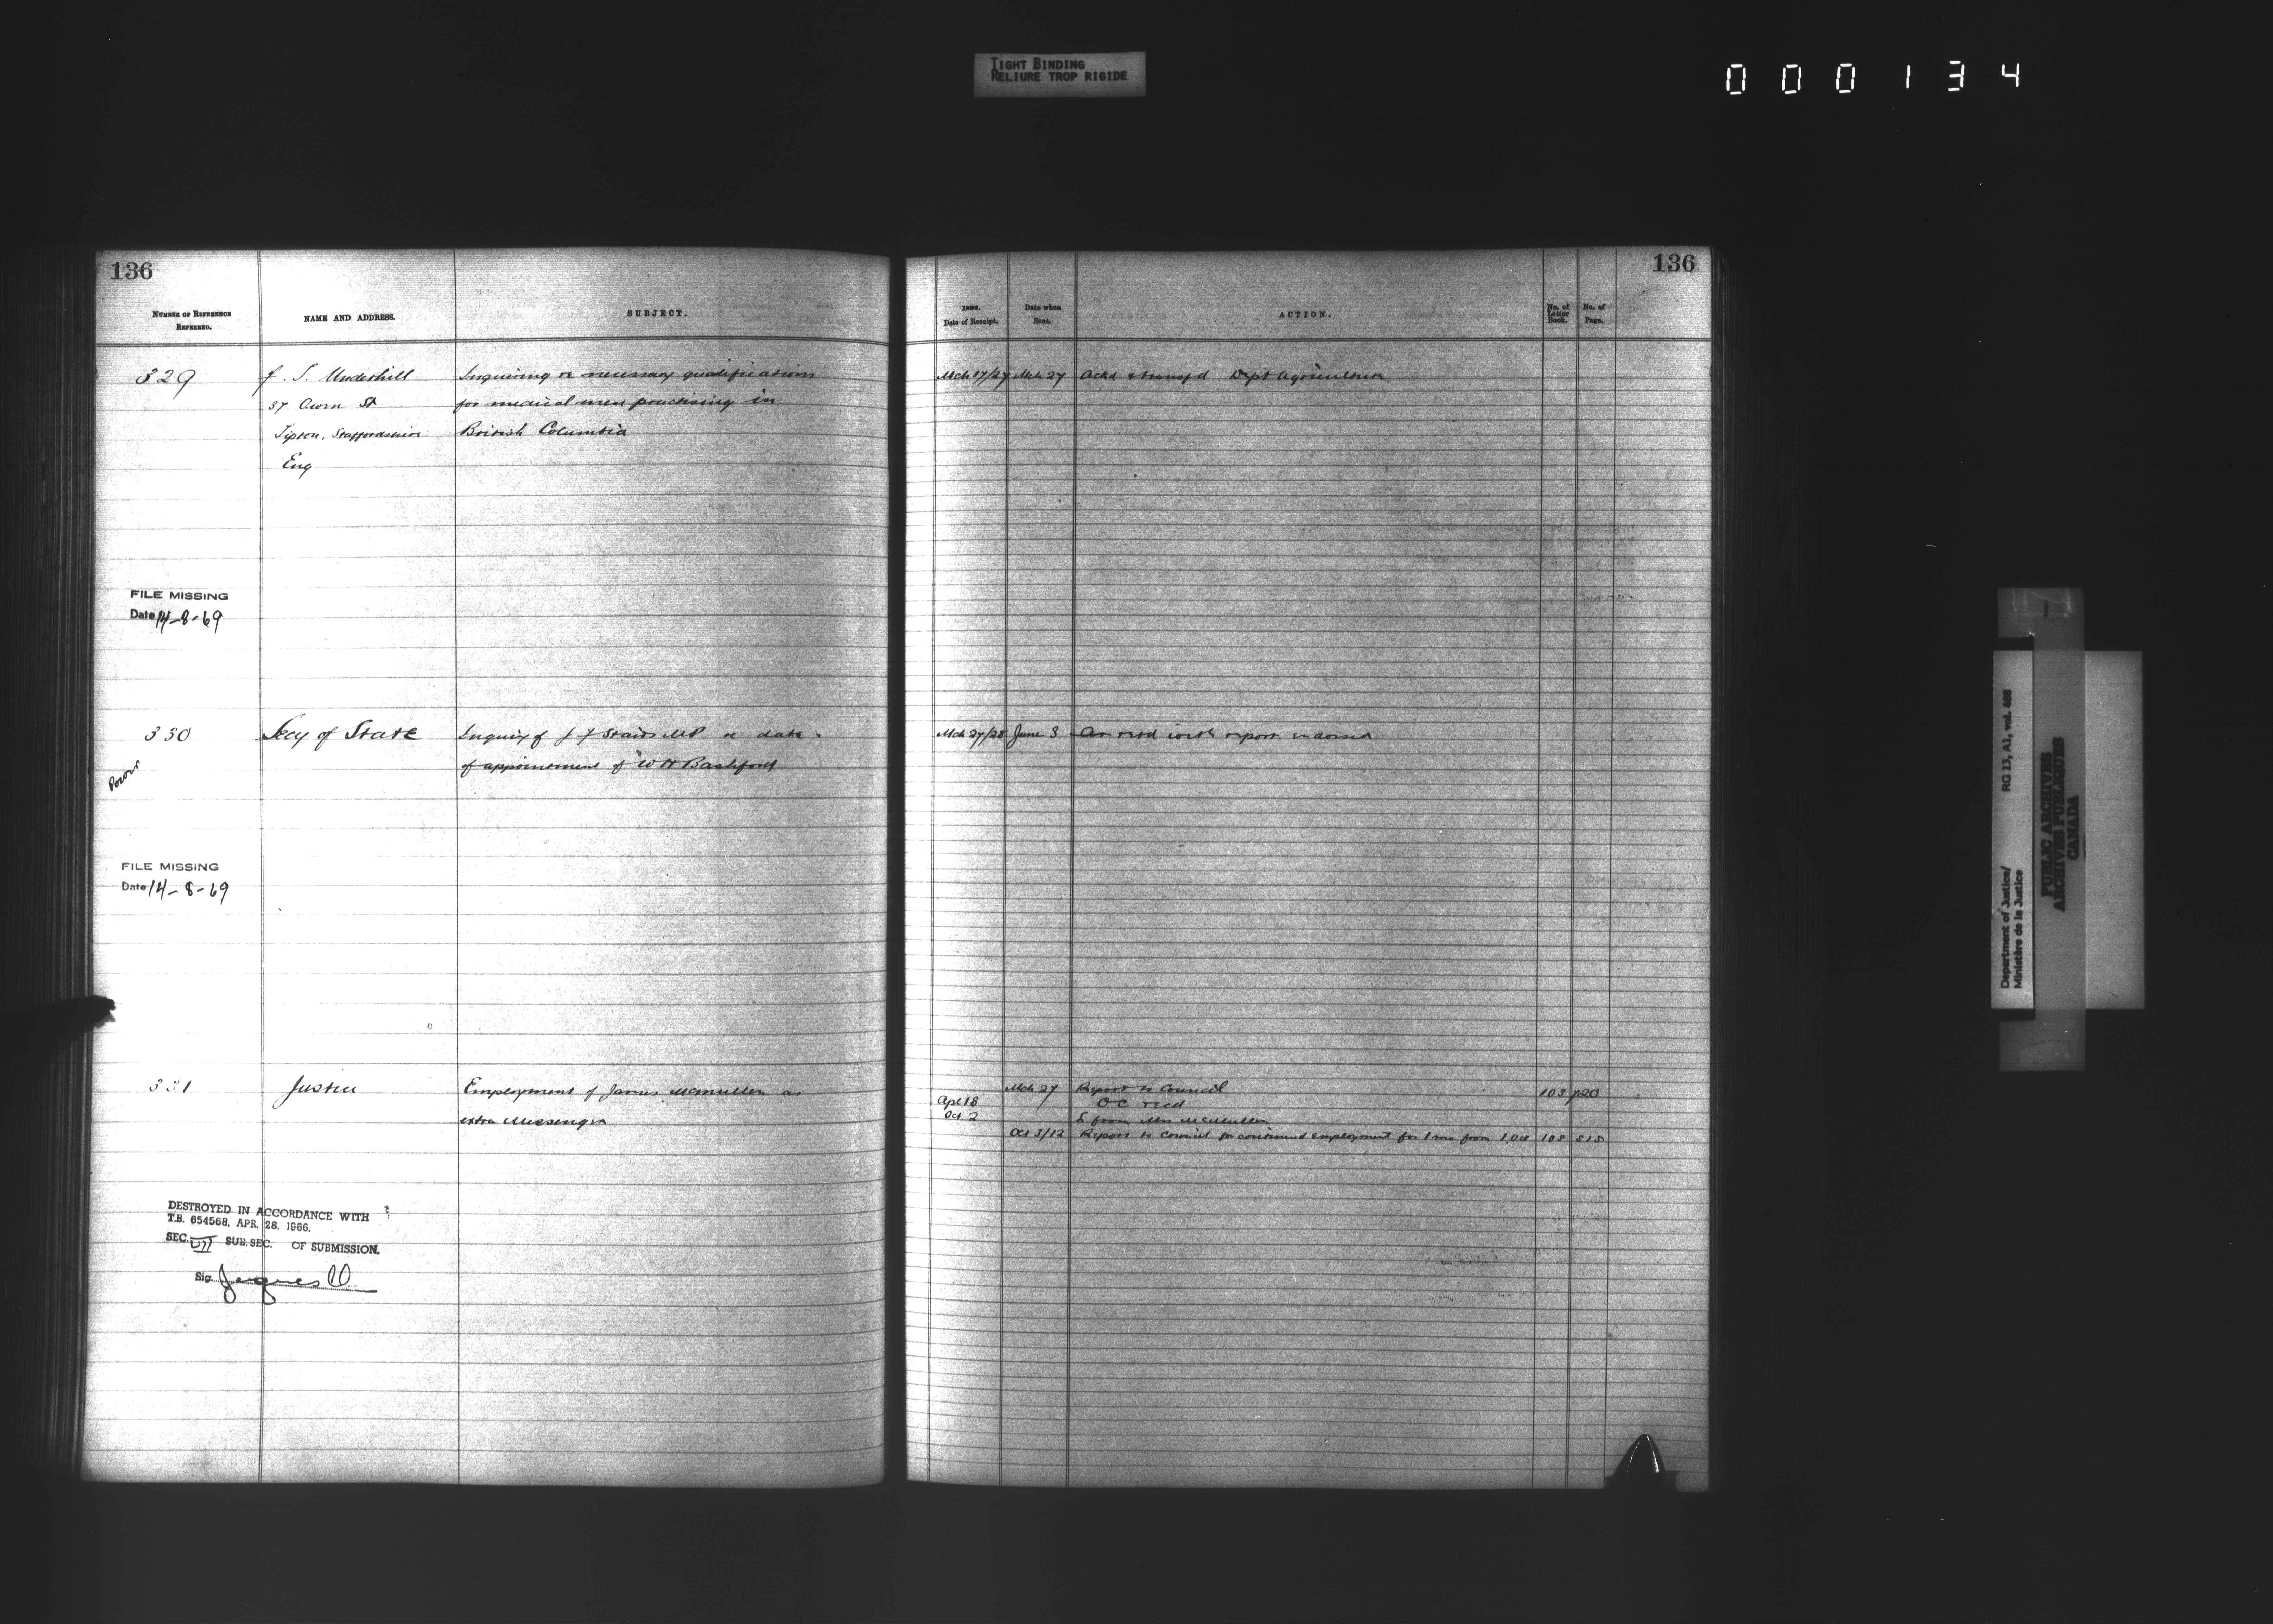 TIGHT BINDING
RELIURE TROP RIGIDE
000134
136
NUMBER OF REFERENCE
REFERRED.
NAME AND ADDRESS.
SUBJECT.
329
J. S. Underhill
Inquiring re necessary qualifications
37 Crown St
for medical men practising in
Tipton, Staffordshire
British Columbia
Eng
FILE MISSING
Date 14-8-69
330
Secy of State
Inquiry of J F Stairs MP re date
of appointment of W H Bashford
FILE MISSING
Date 14-8-69
331
Justice
Employment of James McMullen as
extra Messenger
DESTROYED IN ACCORDANCE WITH
T.B. 654568, APR. 28, 1966.
SEC. VII SUB.SEC. OF SUBMISSION.
Sig. Jacques
136
Date of Receipt.
Date when
Sent.
ACTION.
No. of
Letter
Book.
No. of
Page.
Mch 27 Ackd & transfd Dept Agriculture
Mch 27/28 June 3 retd with report endorsed
Mch 27 Report to Council 103 720
Apl 18 OC recd
Oct 2 L from Mrs McMullen
Oct 3/12 Report to Council for continued employment for 1 mo from 1 Oct 108 515
Department of Justice/ RG 13, A1, vol. 488
Ministère de la Justice
PUBLIC ARCHIVES
ARCHIVES PUBLIQUES
CANADA